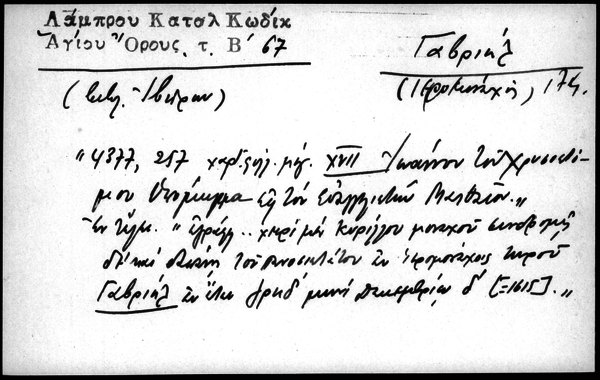 Λάμπρου Καταλ Κωδίκ
Ἁγίου Ὄρους. τ. Β΄ 67
Γαβριήλ
(Ἱερομόναχος) 17
(Ἰβήρων)
„ 4377, 257 XVII Ἰωάννου τοῦ Χρυσοστό-
μου Ὑπόμνημα εἰς τὸν Εὐαγγελιστὴν Ματθαῖον. „
Ἐν τέλει. „ ἐγράφη .. χειρὶ μὲν Κυρίλλου μοναχοῦ συνδρομῇ
δὲ καὶ τοῦ ἐν ἱερομονάχοις κυροῦ
Γαβριήλ ἐν ἔτει ͵ζρκδ΄ μηνὶ Δεκεμβρίῳ δ΄ [=1615]. „